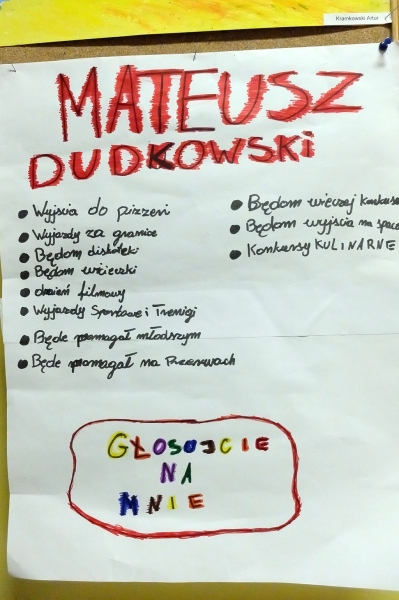 Kramkowski Artur
MATEUSZ
DUDKOWSKi
Wyjścia do pizzeri
Wyjazdy za granice
Będom diskoteki
Będom wcieczki
dzień filmowy
Wyjazdy Sportowe i Trenigi
Będe pomagał młodszym
Będe pomagał na Przerwach
Będom wiecej
Będom wyjścia na
Konkursy KULINARNE
GŁOSUJCIE
NA
MNIE